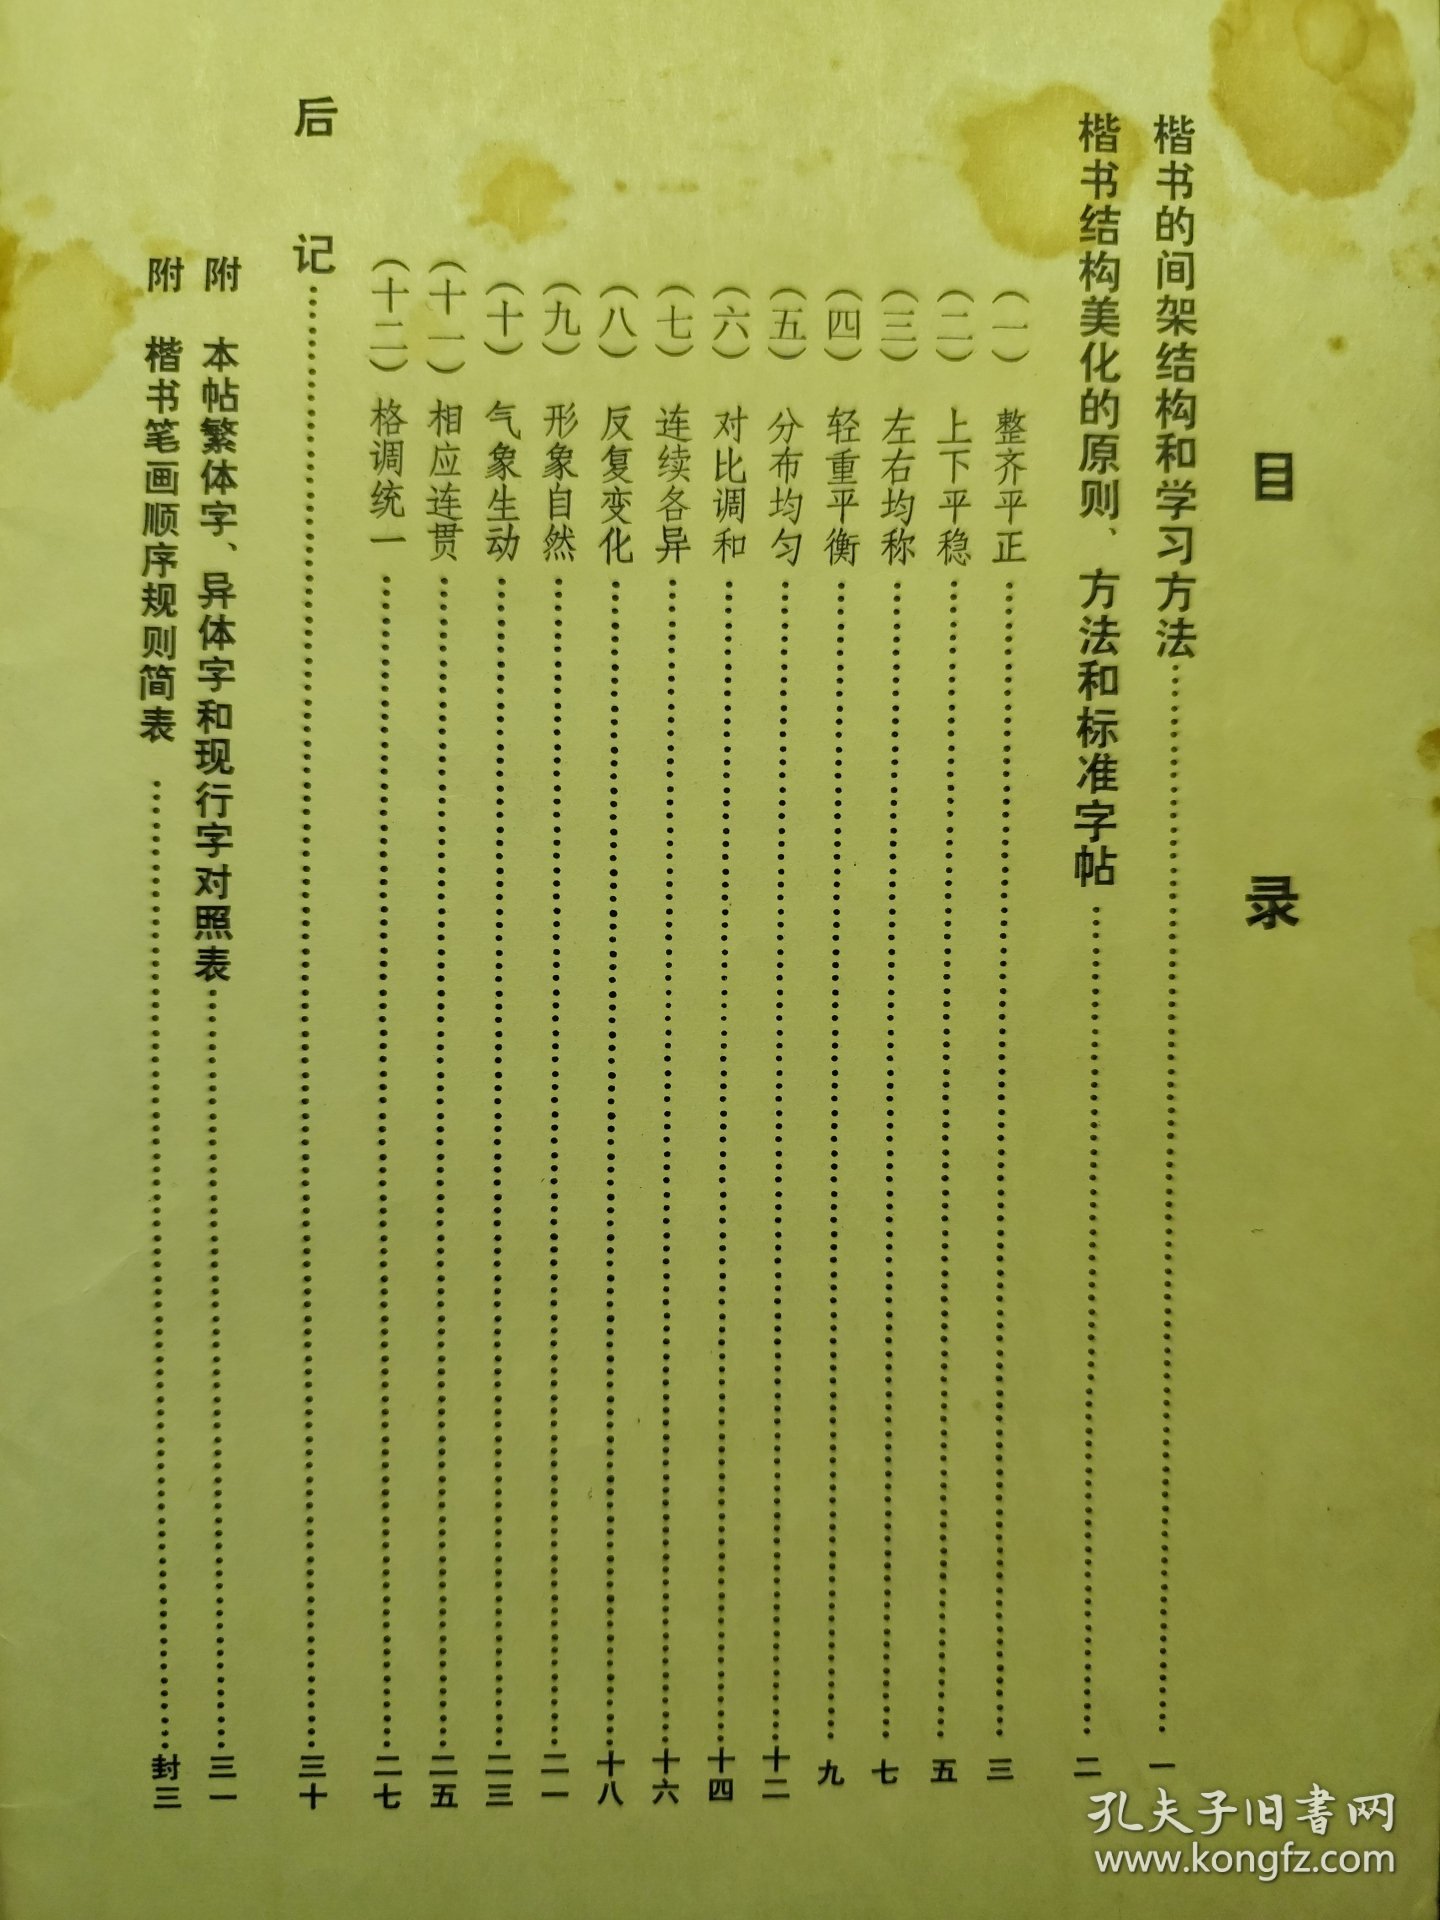 目 录
楷书的间架结构和学习方法……一
楷书结构美化的原则、方法和标准字帖……二
（一）整齐平正……三
（二）上下平稳……五
（三）左右均称……七
（四）轻重平衡……九
（五）分布均匀……十二
（六）对比调和……十四
（七）连续各异……十六
（八）反复变化……十八
（九）形象自然……二一
（十）气象生动……二三
（十一）相应连贯……二五
（十二）格调统一……二七
后 记……三十
附 本帖繁体字、异体字和现行字对照表……三一
附 楷书笔画顺序规则简表……封三
孔夫子旧书网
www.kongfz.com